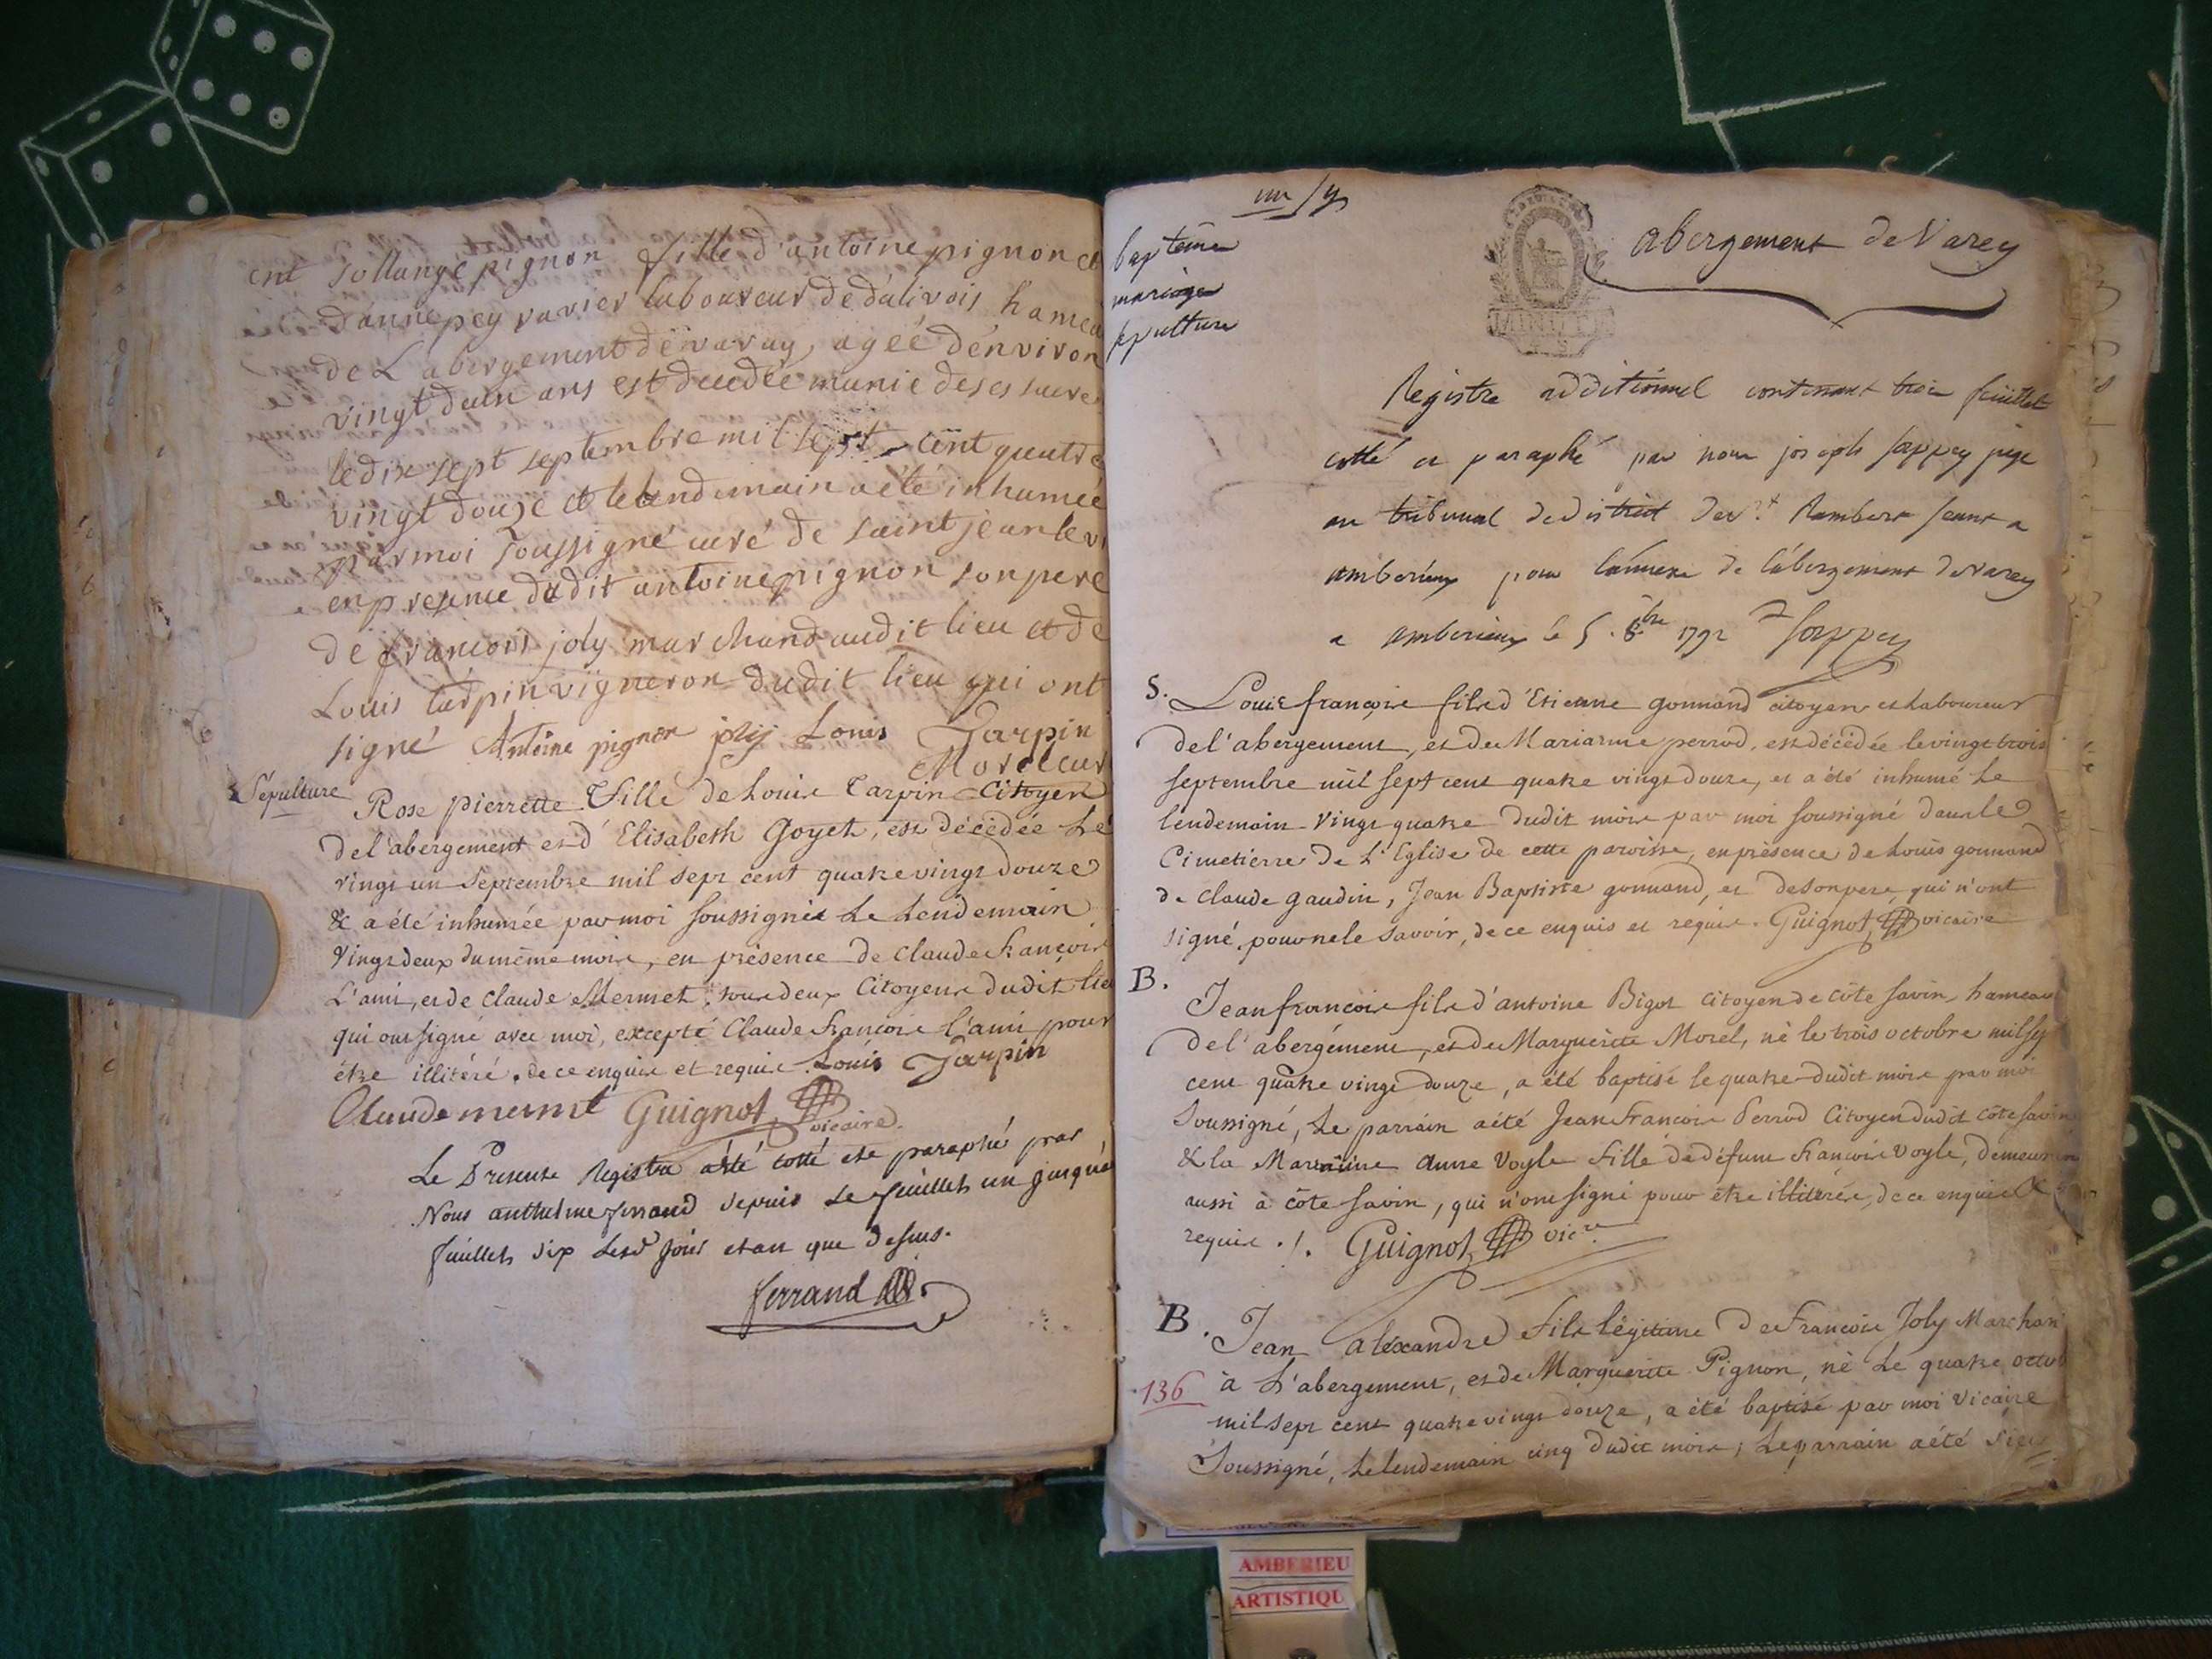 ent sollange pignon fille d'antoine pignon et
d'anne pey ravier laboureur de dalivois hamea
de L abergement de varay, agéé d'énviron
vingt deux ans est decedée munie de ses sacre
le dix sept septembre mil sept cent quatre
vingt douze et le lendemain a été inhumée
par moi soussigné curé de saint jean le vi
en presence dudit antoine pignon son pere
de francois joly marchand audit lieu et de
Louis tarpin vigneron dudit lieu qui ont
signé Antoine pignon joly Louis Tarpin
Morel curé
Sépulture
Rose pierrette fille de Louis Tarpin Citoyen
de l'abergement et d'Elisabeth Goyet, est décédée Le
vingt un Septembre mil sept cent quatre vingt douze
& a été inhumée par moi soussigné Le Lendemain
vingt deux du même mois, en présence de Claude francois
L'ami, et de Claude Mermet, tous deux Citoyens dudit lieu
qui ont signé avec moi, excepté Claude francois L'ami pour
être illitéré, de ce enquis et requis. Louis Tarpin
Claude mermet Guignot vicaire.
Le Present Registre a été cotté et paraphé par
Nous anthelme ferrand depuis Le feuillet un jusqu'a
feuillet six Lesd jour et an que dessus.
ferrand
un
baptême
mariage
sepulture
abergement de Varey
Registre additionnel contenant trois feuillet
cotté et paraphé par nous joseph sappey juge
au tribunal de district de St Rambert seant a
amberieux pour l'année de l'abergement de varey
a amberieux le 5. 8bre 1792 Sappey
S. Louis françois fils d'Etienne gonnand citoyen et Laboureur
de l'abergement, et de Marianne perrod, est décédée le vingt trois
septembre mil sept cent quatre vingt douze, et a été inhumé Le
lendemain vingt quatre dudit mois par moi soussigné dans le
Cimetierre de L'Eglise de cette paroisse, en présence de Louis gonnand
de Claude gaudin, Jean Baptiste gonnand, et de son pere, qui n'ont
signé, pour ne le savoir, de ce enquis et requis. Guignot vicaire
B. Jean francois fils d'antoine Bigot Citoyen de côte savin hameau
de l'abergement, et de Marguerite Morel, né le trois octobre mil sep
cent quatre vingt douze, a été baptisé le quatre dudit mois par moi
Soussigné, Le parrain a été Jean francois Perrod Citoyen dudit côte savin
& la Marraine anne Voyle fille de défunt francois Voyle, demeurant
aussi à côte savin, qui n'ont signé pour être illitérés, de ce enquis &
requis. /. Guignot vicre
B. Jean alexandre fils légitime de francois Joly Marchan
136
à L'abergement, et de Marguerite Pignon, né Le quatre octob
mil sept cent quatre vingt douze, a été baptisé par moi vicaire
Soussigné, Le lendemain cinq dudit mois; Le parrain a été sieur
AMBERIEU
ARTISTIQU